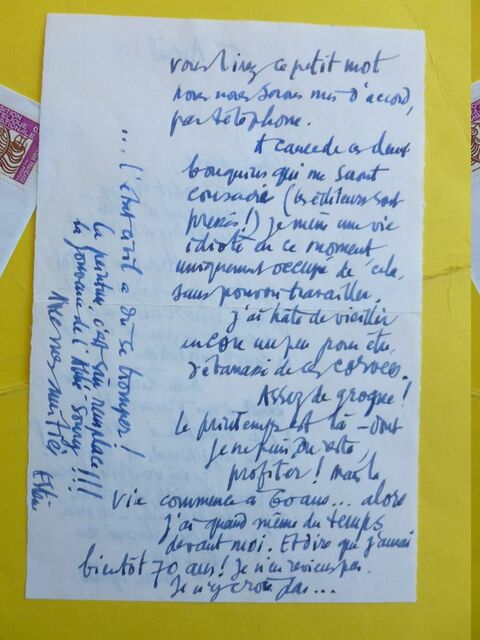 vous lirez ce petit mot
nous nous serons mis d'accord,
par téléphone.
A cause de ces deux
bouquins qui me sont
consacrés (les éditeurs sont
pressés !) je mène une vie
idiote en ce moment
uniquement occupé de cela,
sans pouvoir travailler.
J'ai hâte de vieillir
encore un peu pour être
débarrassé de ces corvées.
Assez de grogne !
Le printemps est là - dont
je ne puis, du reste,
profiter ! Mais la
vie commence à 60 ans... alors
j'ai quand même du temps
devant moi. Et dire que j'aurai
bientôt 70 ans ! Je n'en reviens pas.
Je n'y crois pas...
... l'état civil a dû se tromper !
La peinture, c'est sûr, remplace
la jouvence de l'Abbé Soury !!!
Avec nos amitiés